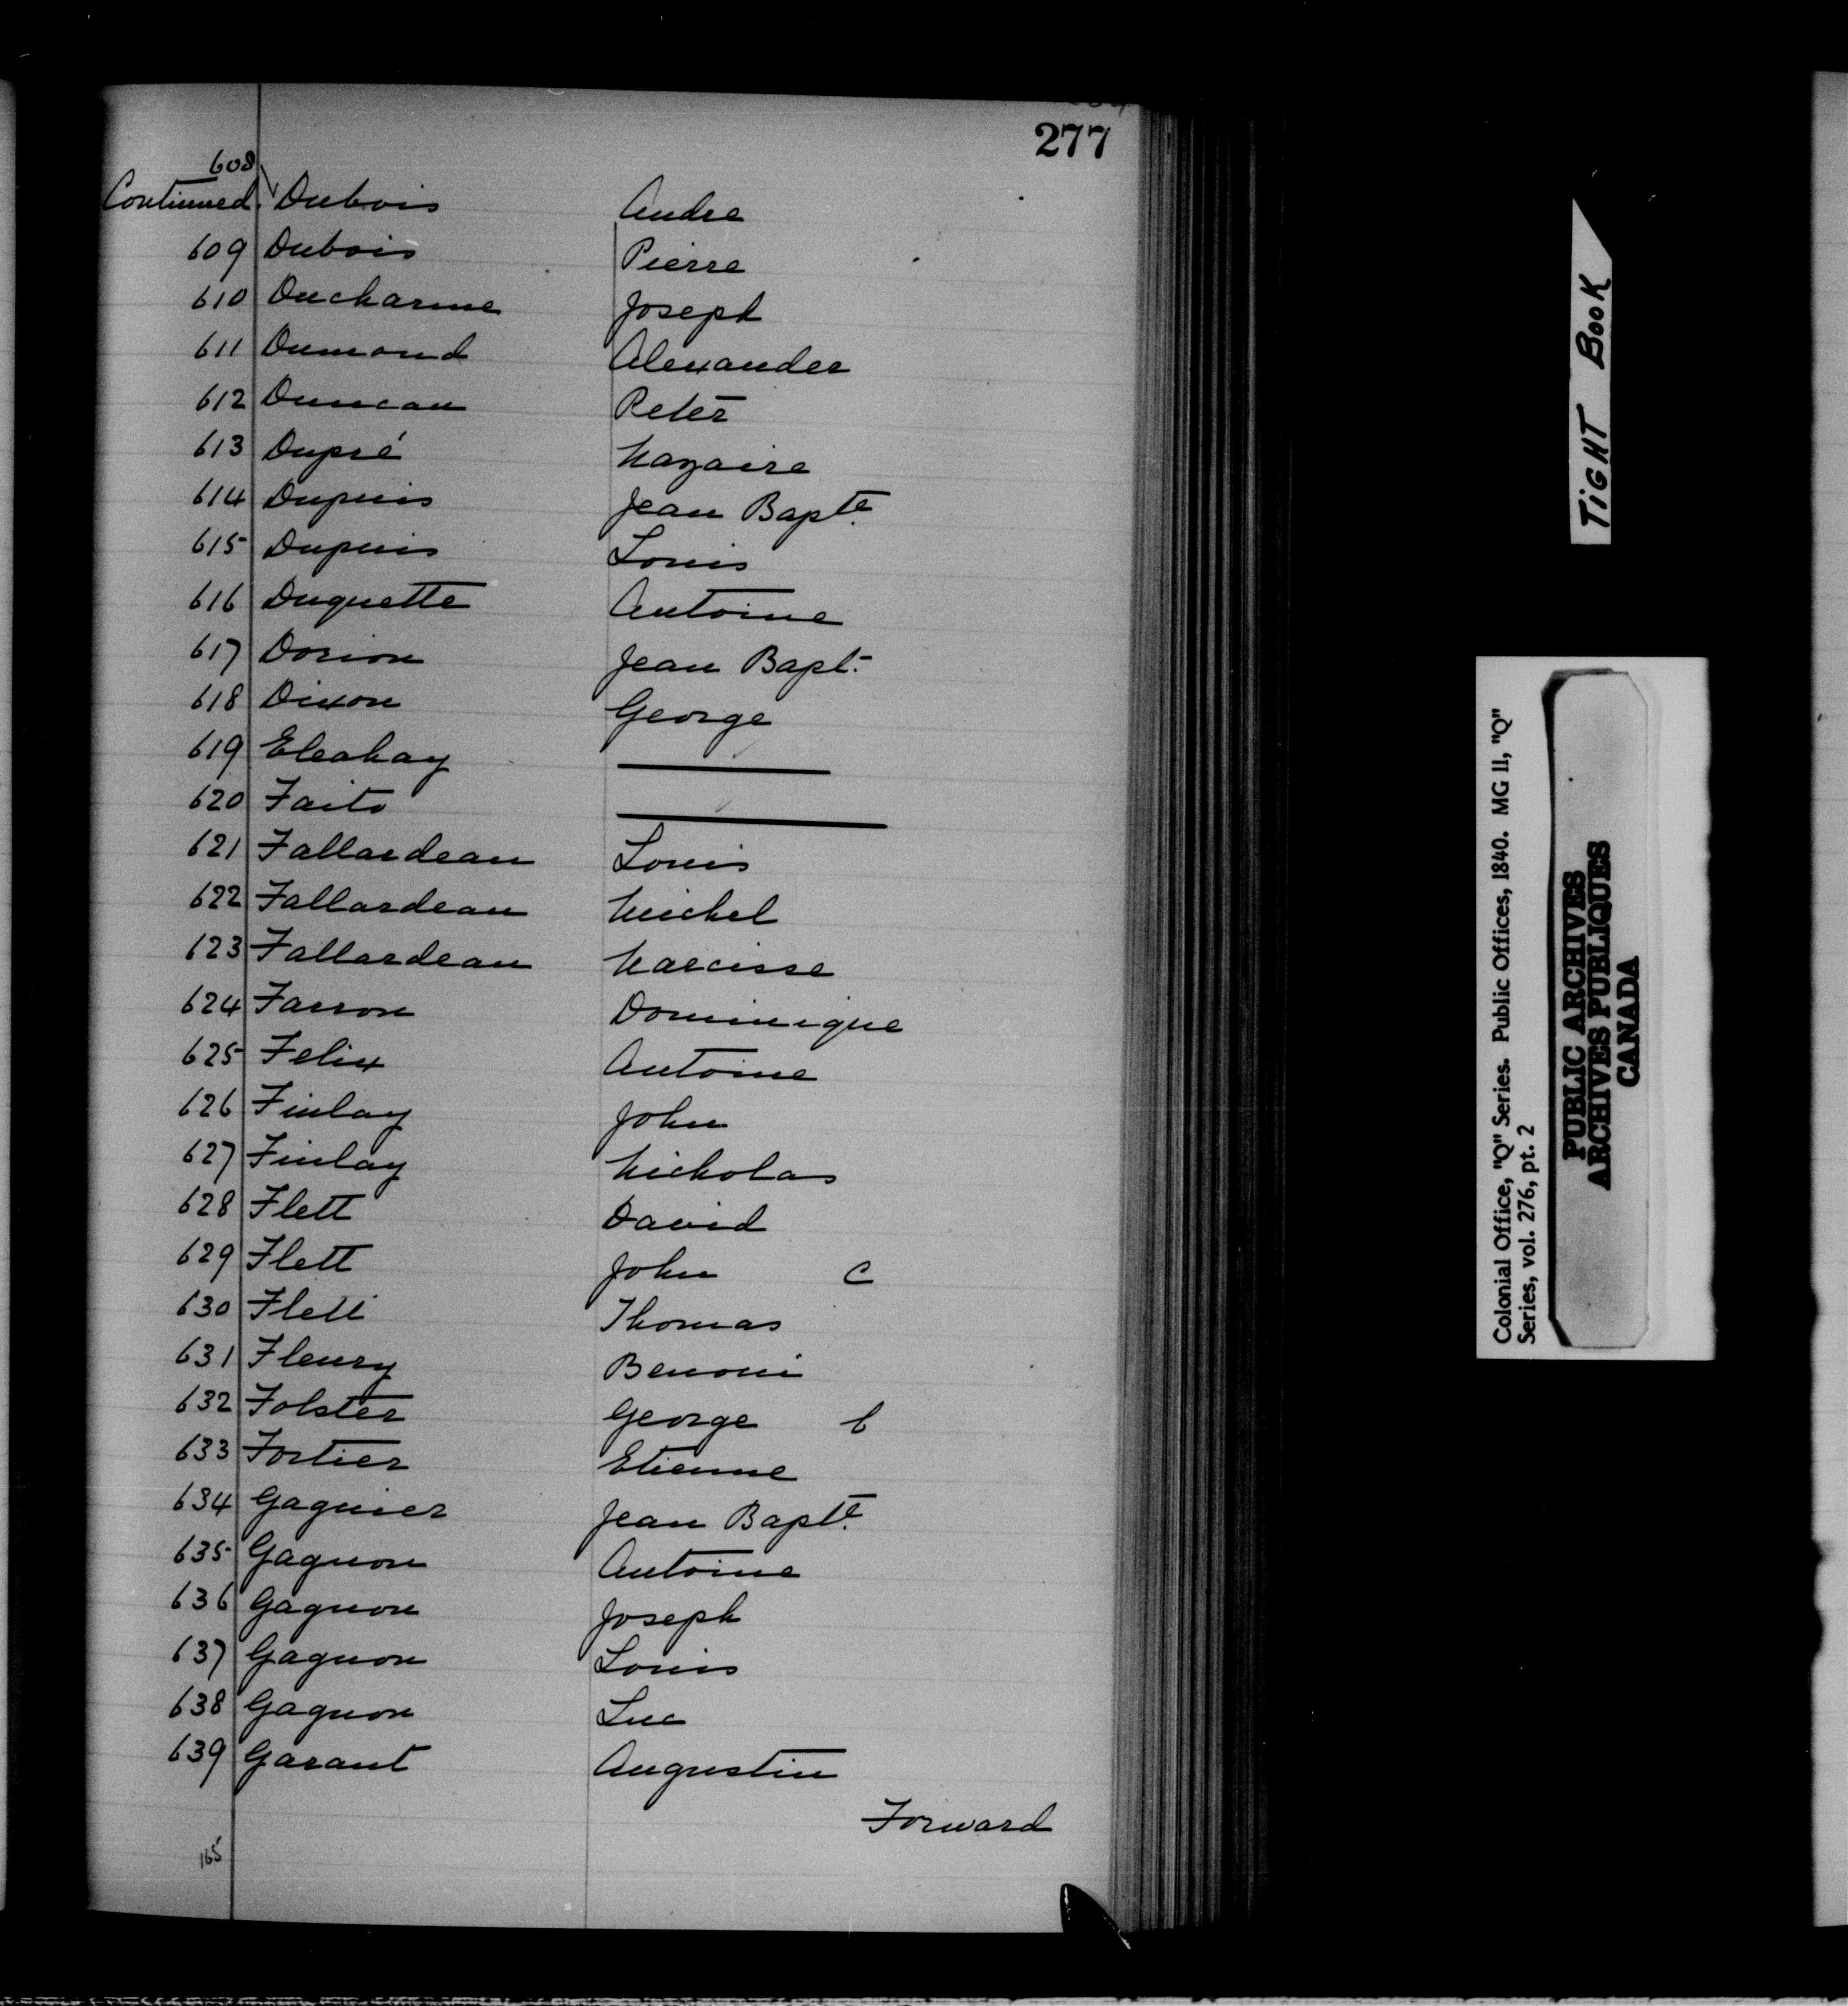 277
608
Continued. Dubois Andre
609 Dubois Pierre
610 Ducharme Joseph
611 Dumond Alexander
612 Duncan Peter
613 Dupré Nazaire
614 Dupuis Jean Bapte.
615 Dupuis Louis
616 Duquette Antoine
617 Dorion Jean Bapt.
618 Dixon George
619 Eleahay
620 Faito
621 Fallardeau Louis
622 Fallardeau Michel
623 Fallardeau Narcisse
624 Farron Dominique
625 Felix Antoine
626 Finlay John
627 Finlay Nicholas
628 Flett David
629 Flett John C
630 Flett Thomas
631 Fleury Benoni
632 Folster George b
633 Fortier Etienne
634 Gagnier Jean Bapte.
635 Gagnon Antoine
636 Gagnon Joseph
637 Gagnon Louis
638 Gagnon Luc
639 Garant Augustin
Forward
165
TIGHT BOOK
Colonial Office, "Q" Series. Public Offices, 1840. MG 11, "Q"
Series, vol. 276, pt. 2
PUBLIC ARCHIVES
ARCHIVES PUBLIQUES
CANADA